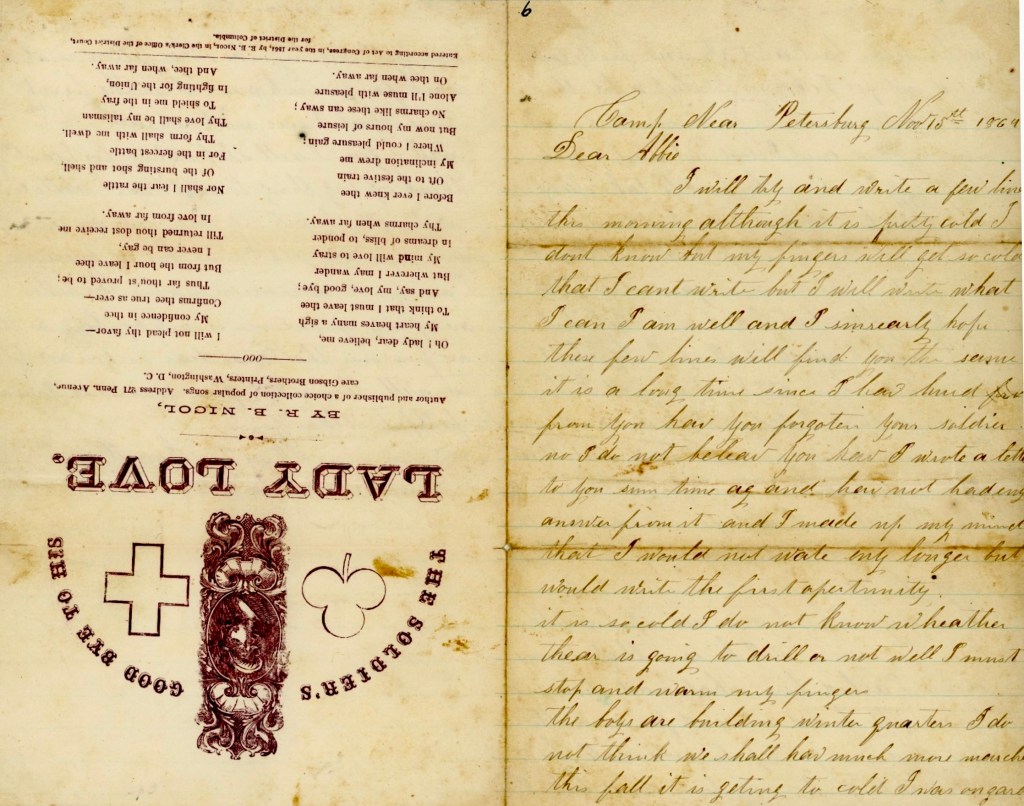 THE SOLDIER'S GOOD BYE TO HIS
LADY LOVE.
BY R. B. NICOL,
Author and publisher of a choice collection of popular songs. Address 271 Penn. Avenue,
care Gibson Brothers, Printers, Washington, D. C.
—ooo—
Oh! lady dear, believe me,
My heart heaves many a sigh
To think that I must leave thee
And say, my love, good bye;
But wherever I may wander
My mind will love to stray
in dreams of bliss, to ponder
Thy charms when far away.
Before I ever knew thee
Oft to the festive train
My inclination drew me
Where I could pleasure gain;
But now my hours of leisure
No charms like these can sway;
Alone I'll muse with pleasure
On thee when far away.
I will not plead thy favor—
My confidence in thee
Confirms thee true as ever—
Thus far thou'st proved to be;
But from the hour I leave thee
I never can be gay,
Till returned thou dost receive me
In love from far away.
Nor shall I fear the rattle
Of the bursting shot and shell,
For in the fiercest battle
Thy form shall with me dwell.
Thy love shall be my talisman
To shield me in the fray
In fighting for the Union,
And thee, when far away.
Entered according to Act of Congress, in the year 1864, by R. B. NICOL, in the Clerk's Office of the District Court,
for the District of Columbia.
6
Camp Near Petersburg Nov 15th 1864
Dear Abbie
I will try and write a few line
this morning although it is pretty cold I
dont know but my fingers will get so cold
that I cant write but I will write what
I can I am well and I sinsearly hope
these few lines will find you the same
it is a long time since I hav hurd
from you hav you forgoten your soldier
no I do not beleav you hav I wrote a lett
to you sum time ag and hav not had eny
answer from it and I made up my mind
that I would not wate eny longer but
would write the first apertunity
it is so cold I do not know wheather
thear is going to drill or not well I must
stop and warm my fingers
the boys are building winter quarters I do
not think we shall hav much more march
this fall it is geting to cold I was on gard